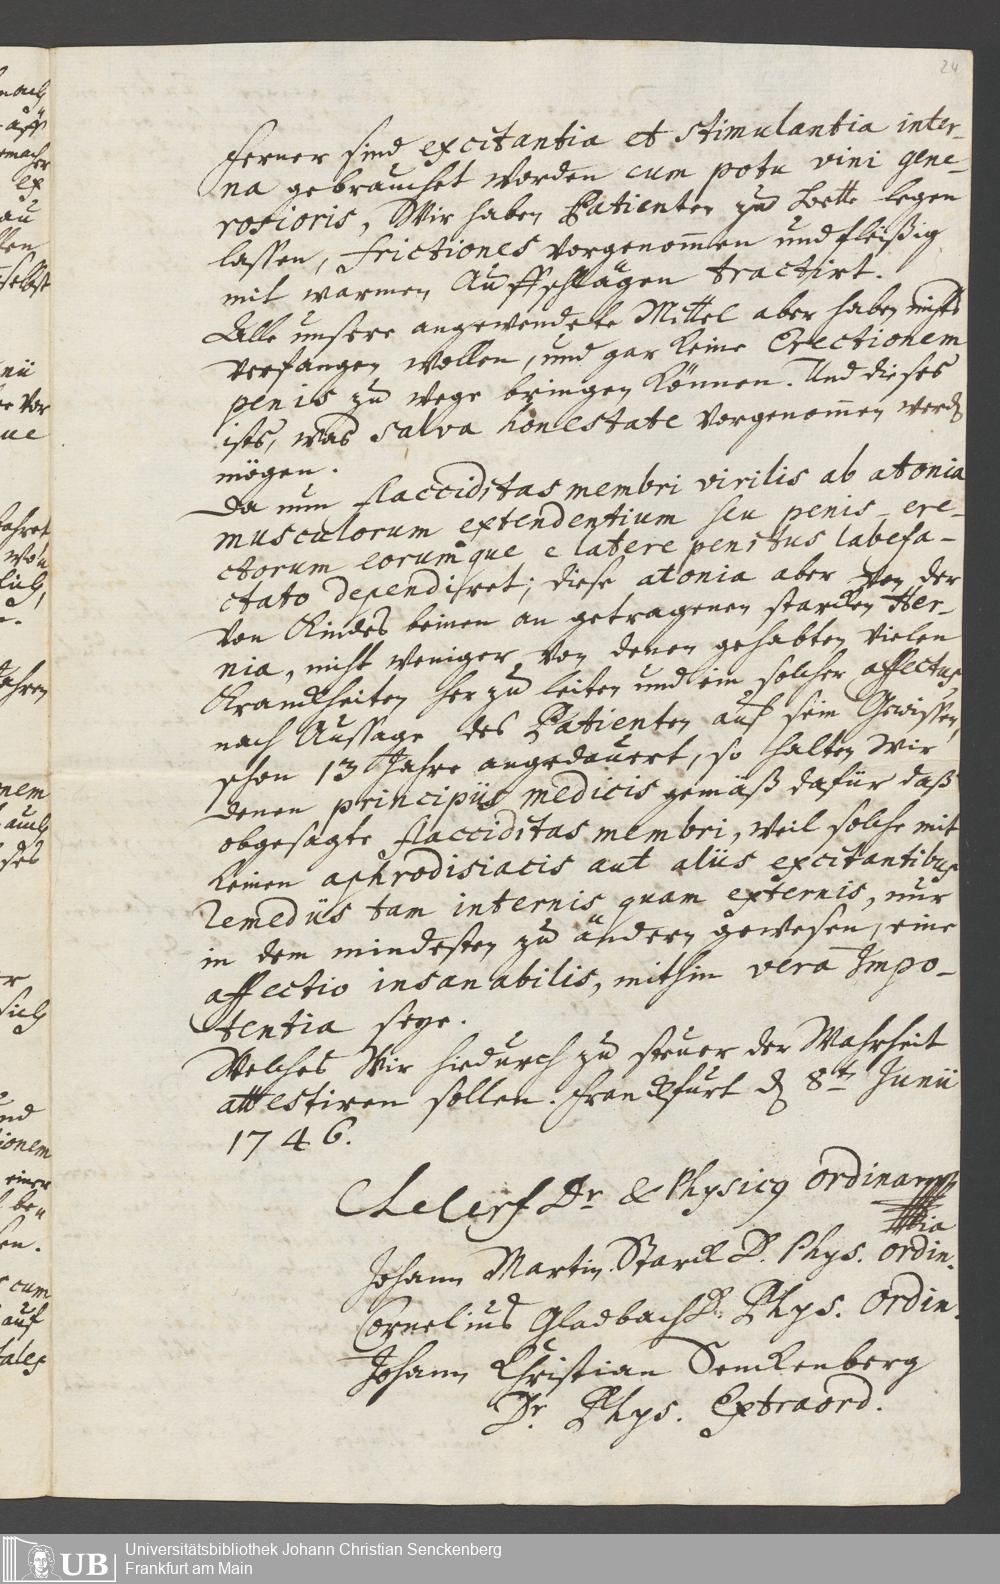 24
ferner sind excitantia et stimulantia inter-
na gebrauchet worden cum potu vini gene-
rosioris, Wir haben Patienten zu bette legen
lassen, frictiones vorgenom̄en und fleißig
mit warmen Auffschlägen tractirt.
Alle unsere angewendete Mittel aber haben nichts
verfangen wollen, und gar keine Erectionem
penis zu wege bringen können. Und dieses
ists, was salva honestate vorgenom̄en werden
mögen.
Da nun flacciditas membri virilis ab atonia
musculorum extendentium seu penis-ere-
ctorum eorumque e latere penitus labefa-
ctato dependiret; diese atonia aber von der
von Kindes beinen an getragenen starcken Her-
nia, nicht weniger von denen gehabten vielen
Kranckheiten her zu leiten und ein solcher affectus,
nach Aussage des Patienten auf sein Gewissen,
schon 13 Jahre angedauert, so halten Wir
denen principiis medicis gemäß dafür daß
obgesagte flacciditas membri, weil solche mit
keinen aphrodisiacis aut aliis excitantibus
remediis tam internis quam externis, nur
in dem mindesten zu ändern gewesen, eine
affectio insanabilis, mithin vera Impo-
tentia seye.
Welches Wir hiedurch zu steuer der Wahrheit
attestiren sollen. Franckfurt d 8t Junii
1746.
Dr & Physicq ordinar
Johann Martin Starck D. Phys. ordin.
Cornelius Gladbach D. Phys. Ordin.
Johann Christian Senckenberg
Dr. Phys. Extraord.
UB
Universitätsbibliothek Johann Christian Senckenberg
Frankfurt am Main